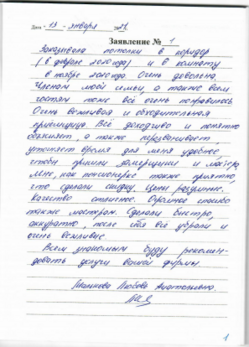 Дата «13» января
Заявление № 1
Заказывала потолки в коридор
(в феврале 2020 года) и в комнату
в ноябре 2020 года. Очень довольна.
Членам моей семьи, а также всем
гостям тоже всё очень понравилось
Очень вежливая и обходительная
приемщица. Всё доходчиво и понятно
объясняет а также перезванивает
уточняет время для меня удобное
чтобы пришли замерщики и мастера
Мне, как пенсионерке также приятно,
что сделали скидку. Цены разумные,
качество отличное. Огромное спасибо
также мастерам. Сделали быстро,
аккуратно, после себя всё убрали и
очень вежливые.
Всем знакомым буду рекомен-
довать услуги вашей фирмы.
Любовь Анатольевна.
1